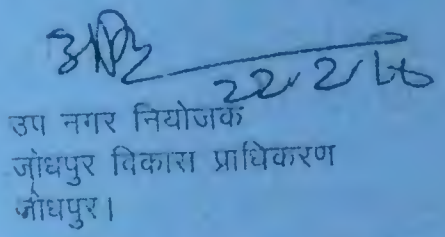 22/2/16
उप नगर नियोजक
जोधपुर विकास प्राधिकरण
जोधपुर।